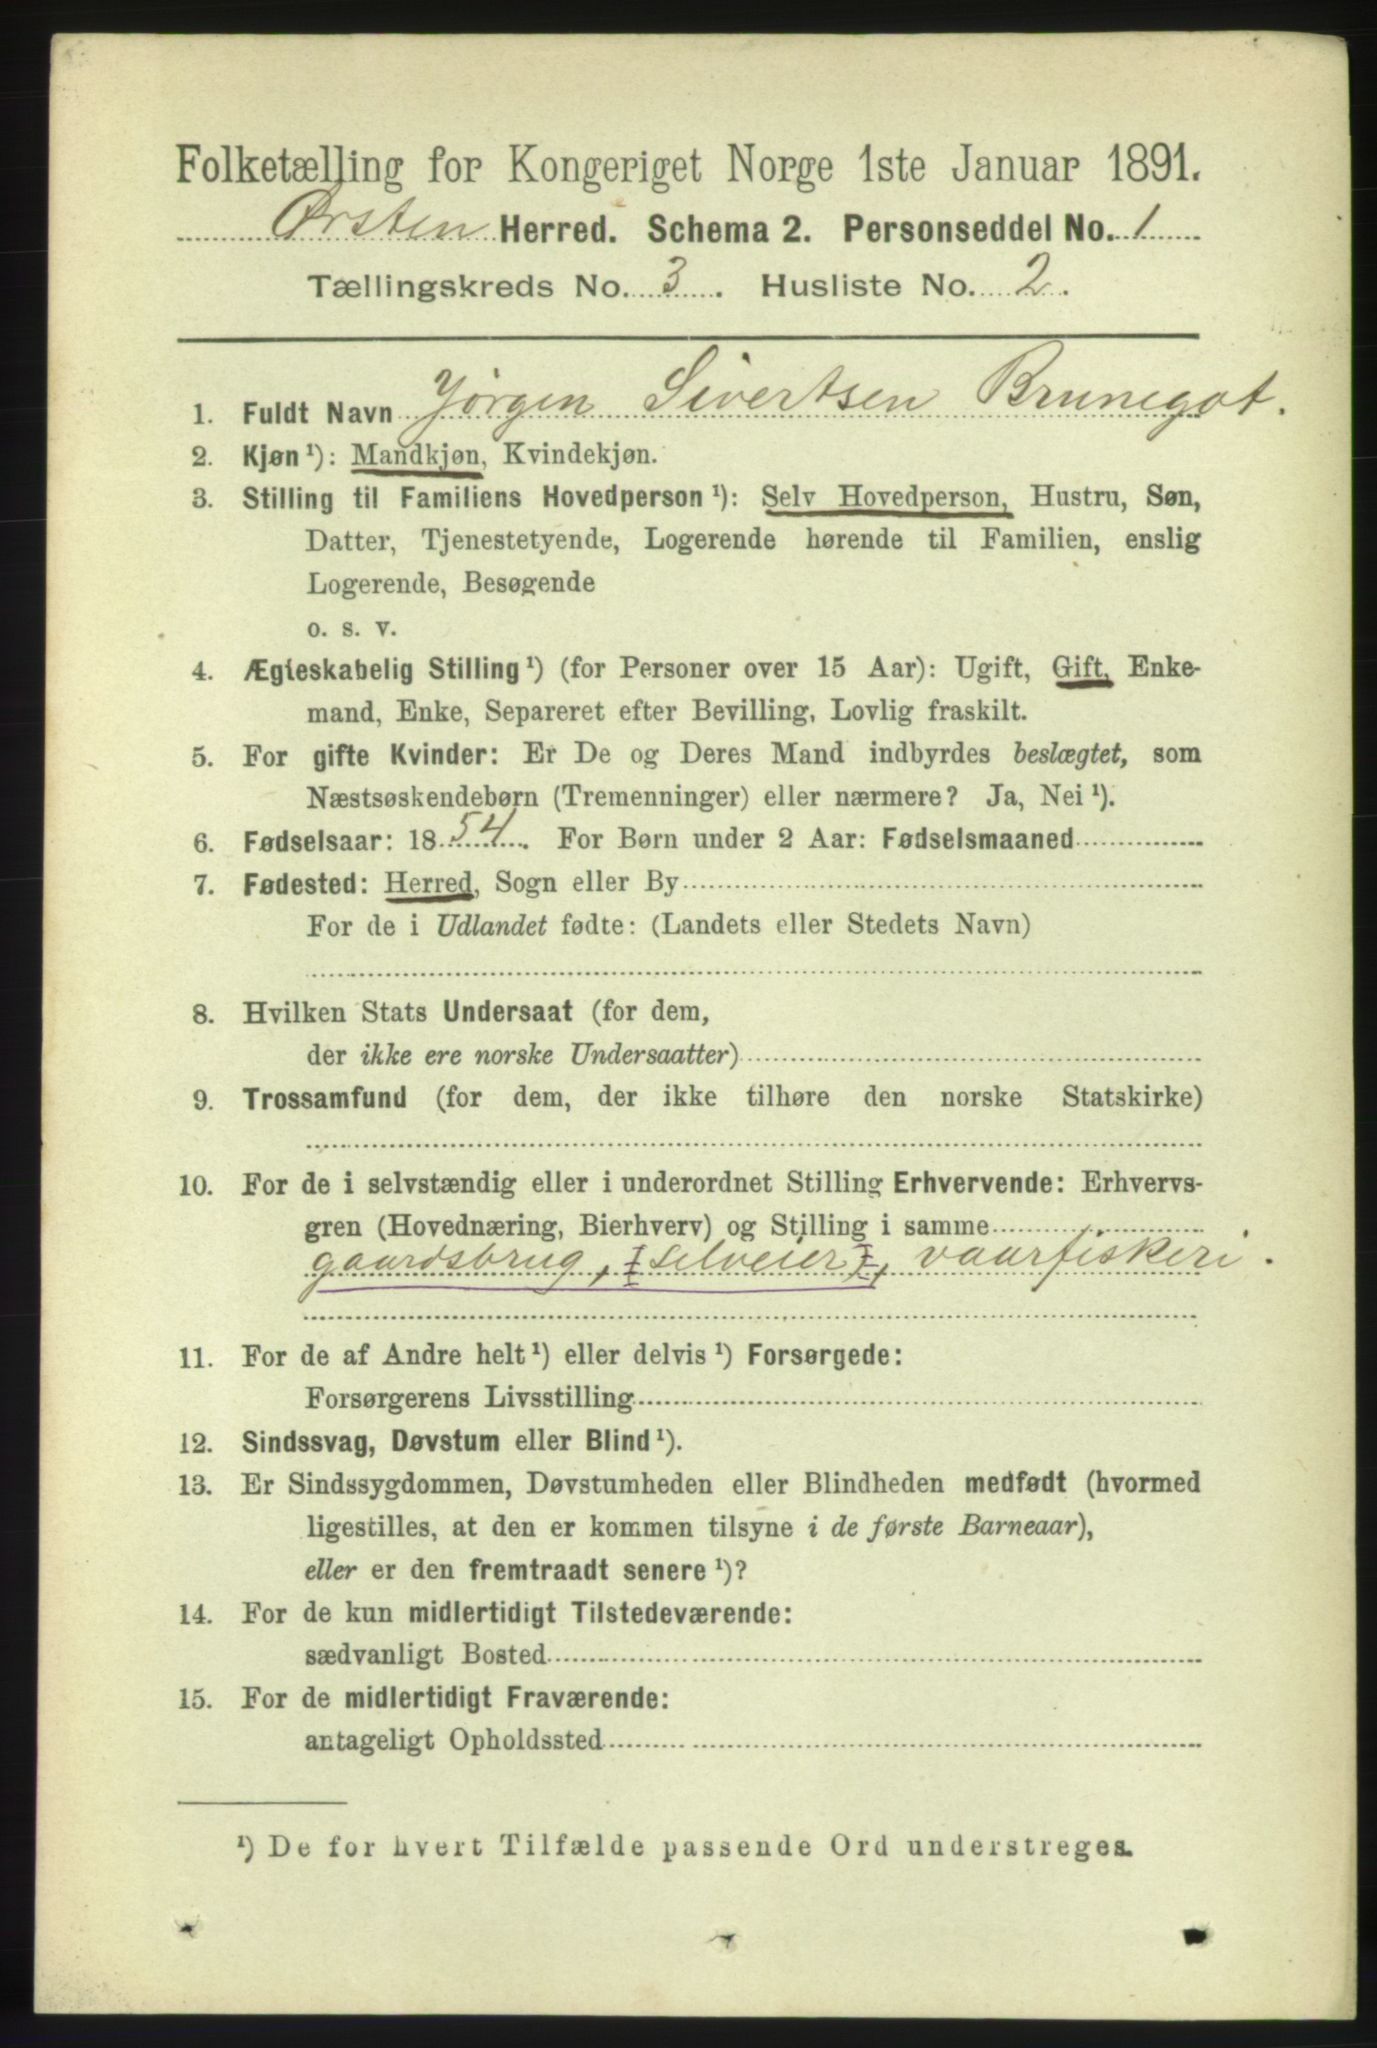 Folketælling for Kongeriget Norge 1ste Januar 1891.
Ørsten Herred. Schema 2. Personseddel No. 1
Tællingskreds No. 3. Husliste No. 2.
1. Fuldt Navn Jørgen Sivertsen Brunegot.
2. Kjøn¹): Mandkjøn, Kvindekjøn.
3. Stilling til Familiens Hovedperson¹): Selv Hovedperson, Hustru, Søn,
Datter, Tjenestetyende, Logerende hørende til Familien, enslig
Logerende, Besøgende
o. s. v.
4. Ægteskabelig Stilling¹) (for Personer over 15 Aar): Ugift, Gift, Enke-
mand, Enke, Separeret efter Bevilling, Lovlig fraskilt.
5. For gifte Kvinder: Er De og Deres Mand indbyrdes beslægtet, som
Næstsøskendebørn (Tremenninger) eller nærmere? Ja, Nei¹).
6. Fødselsaar: 1854. For Børn under 2 Aar: Fødselsmaaned
7. Fødested: Herred, Sogn eller By
For de i Udlandet fødte: (Landets eller Stedets Navn)
8. Hvilken Stats Undersaat (for dem,
der ikke ere norske Undersaatter)
9. Trossamfund (for dem, der ikke tilhøre den norske Statskirke)
10. For de i selvstændig eller i underordnet Stilling Erhvervende: Erhvervs-
gren (Hovednæring, Bierhverv) og Stilling i samme
gaardsbrug, (selveier), vaarfiskeri.
11. For de af Andre helt¹) eller delvis¹) Forsørgede:
Forsørgerens Livsstilling
12. Sindssvag, Døvstum eller Blind¹).
13. Er Sindssygdommen, Døvstumheden eller Blindheden medfødt (hvormed
ligestilles, at den er kommen tilsyne i de første Barneaar),
eller er den fremtraadt senere¹)?
14. For de kun midlertidigt Tilstedeværende:
sædvanligt Bosted
15. For de midlertidigt Fraværende:
antageligt Opholdssted
¹) De for hvert Tilfælde passende Ord understreges.